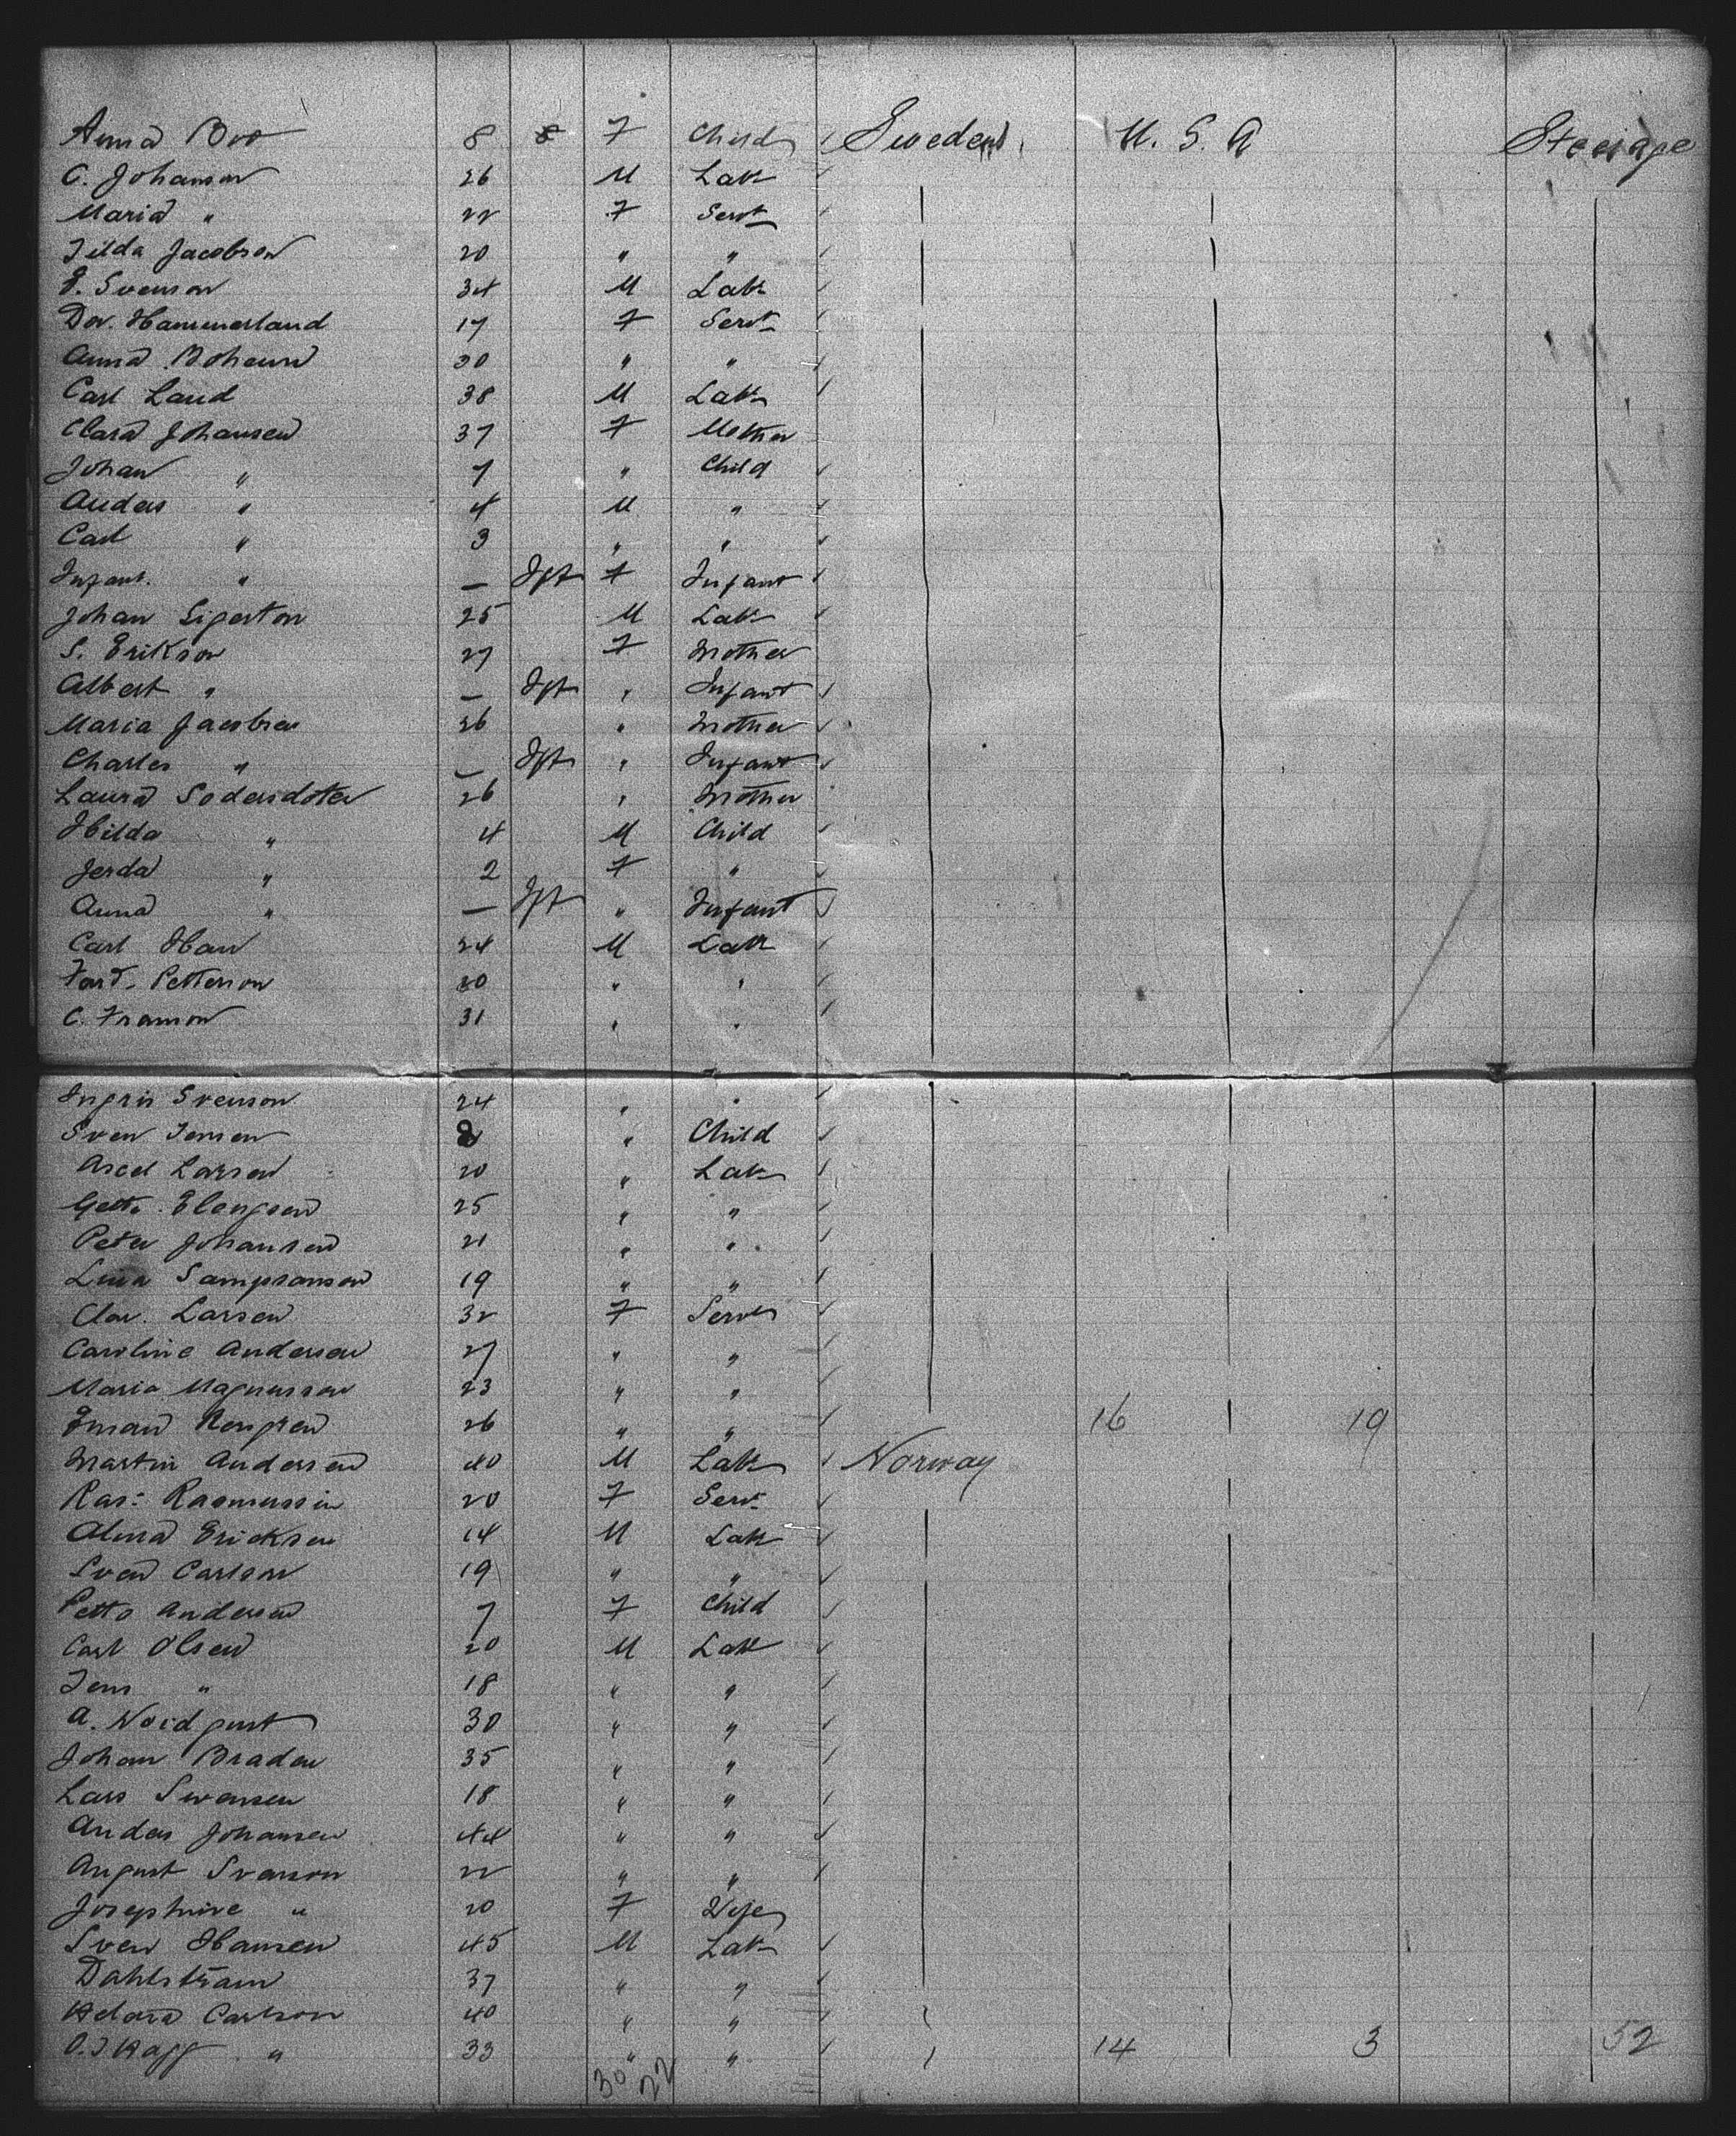 Anna Boo 8 8 F Child Sweden U. S. A Steerage
C. Johanson 26 M Lab
Maria " 22 F Servt
Tilda Jacobson 20 " "
E. Svenson 34 M Lab
Do. Hammerland 17 F Servt
Anna 30 " "
Carl Land 38 M Lab
Clara Johansen 37 F Mother
Johan " 7 " Child
Anders " 4 M "
Carl " 3 " "
Infant. " — Ift F Infant
Johan Sigerton 25 M Lab
S. Erikson 27 F Mother
Albert " — Ift " Infant
Maria Jacobsen 26 " Mother
Charles " — Ift " Infant
Laura Sodersdoter 26 " Mother
Hilda " 4 M Child
Jerda " 2 F "
Anna " — Ift " Infant
Carl Han 24 M Lab
Petterson 20 " "
C. Franson 31 " "
Ingris Svenson 24 " "
Sven Jensen 8 " Child
Axel Larsen 20 " Lab
25 " "
Peter Johansen 21 " "
Lina Sampsonson 19 " "
Larsen 32 F Servt
Caroline Andersen 27 " "
Maria Magnusson 23 " "
26 " " 16 19
Martin Andersen 40 M Lab Norway
Ras: Rasmussin 20 F Servt
Alma Ericksen 14 M Lab
Sven Carlson 19 " "
Andersen 7 F Child
Carl Olsen 20 M Lab
Jens " 18 " "
A. Noidgust 30 " "
Johan Braden 35 " "
Lars Swansen 18 " "
Anders Johansen 44 " "
August Svenson 22 " "
Josephine " 20 F Wife
Sven Hansen 45 M Lab
Dahlstram 37 " "
Carlson 40 " "
" 33 " " 14 3 52
30 22